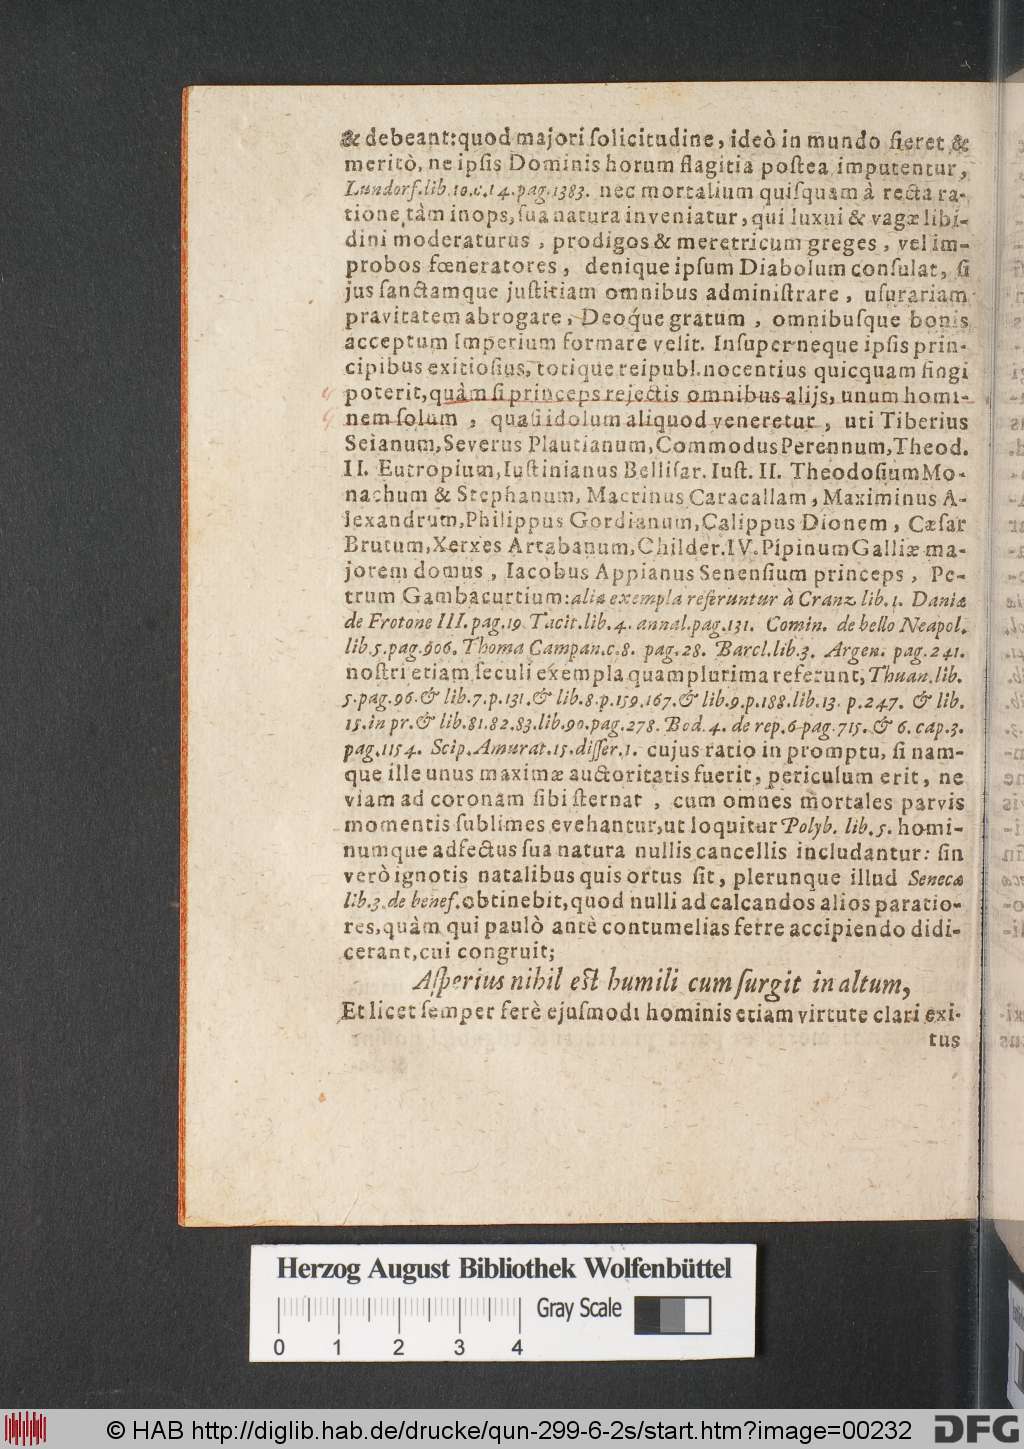 & debeant: quod majori ſolicitudine, ideò in mundo fieret &
meritò, ne ipſis Dominis horum flagitia poſtea imputentur,
Lundorf. lib. 10. c. 14. pag. 1383. nec mortalium quiſquam à recta ra-
tione tàm inops, ſua natura inveniatur, qui luxui & vagæ libi-
dini moderaturus, prodigos & meretricum greges, vel im-
probos fœneratores, denique ipſum Diabolum conſulat, ſi
jus ſanctamque juſtitiam omnibus adminiſtrare, uſurariam
pravitatem abrogare, Deoq́ue gratum, omnibuſque bonis
acceptum Imperium formare velit. Inſuper neque ipſis prin-
cipibus exitioſius, totique reipubl. nocentius quicquam fingi
poterit, quàm ſi princeps rejectis omnibus alijs, unum homi-
nem ſolum, quaſi idolum aliquod veneretur, uti Tiberius
Seianum, Severus Plautianum, Commodus Perennum, Theod.
II. Eutropium, Iuſtinianus Belliſar. Iuſt. II. Theodoſium Mo-
nachum & Stephanum, Macrinus Caracallam, Maximinus A-
lexandrum, Philippus Gordianum, Calippus Dionem, Cæſar
Brutum, Xerxes Artabanum, Childer. IV. Pipinum Galliæ ma-
jorem domus, Iacobus Appianus Senenſium princeps, Pe-
trum Gambacurtium: alia exempla referuntur à Cranz. lib. 1. Daniæ
de Frotone III. pag. 19. Tacit. lib. 4. annal. pag. 131. Comin. de bello Neapol.
lib. 5. pag. 906. Thoma Campan. c. 8. pag. 28. Barcl. lib. 3. Argen. pag. 241.
noſtri etiam ſeculi exempla quamplurima referunt, Thuan. lib.
5. pag. 96. & lib. 7. p. 131. & lib. 8. p. 159. 167. & lib. 9. p. 188. lib. 13. p. 247. & lib.
15. in pr. & lib. 81. 82. 83. lib. 90. pag. 278. Bod. 4. de rep. 6. pag. 715. & 6. cap. 3.
pag. 1154. Scip. Amurat. 15. diſſer. 1. cujus ratio in promptu, ſi nam-
que ille unus maximæ auctoritatis fuerit, periculum erit, ne
viam ad coronam ſibi ſternat, cum omnes mortales parvis
momentis ſublimes evehantur, ut loquitur Polyb. lib. 5. homi-
numque adfectus ſua natura nullis cancellis includantur: ſin
verò ignotis natalibus quis ortus ſit, plerunque illud Senecæ
lib. 3. de benef. obtinebit, quod nulli ad calcandos alios paratio-
res, quàm qui paulò antè contumelias ferre accipiendo didi-
cerant, cui congruit;
Aſperius nihil eſt humili cum ſurgit in altum,
Et licet ſemper ferè ejuſmodi hominis etiam virtute clari exi-
tus
Herzog August Bibliothek Wolfenbüttel
Gray Scale
0 1 2 3 4
© HAB http://diglib.hab.de/drucke/qun-299-6-2s/start.htm?image=00232
DFG